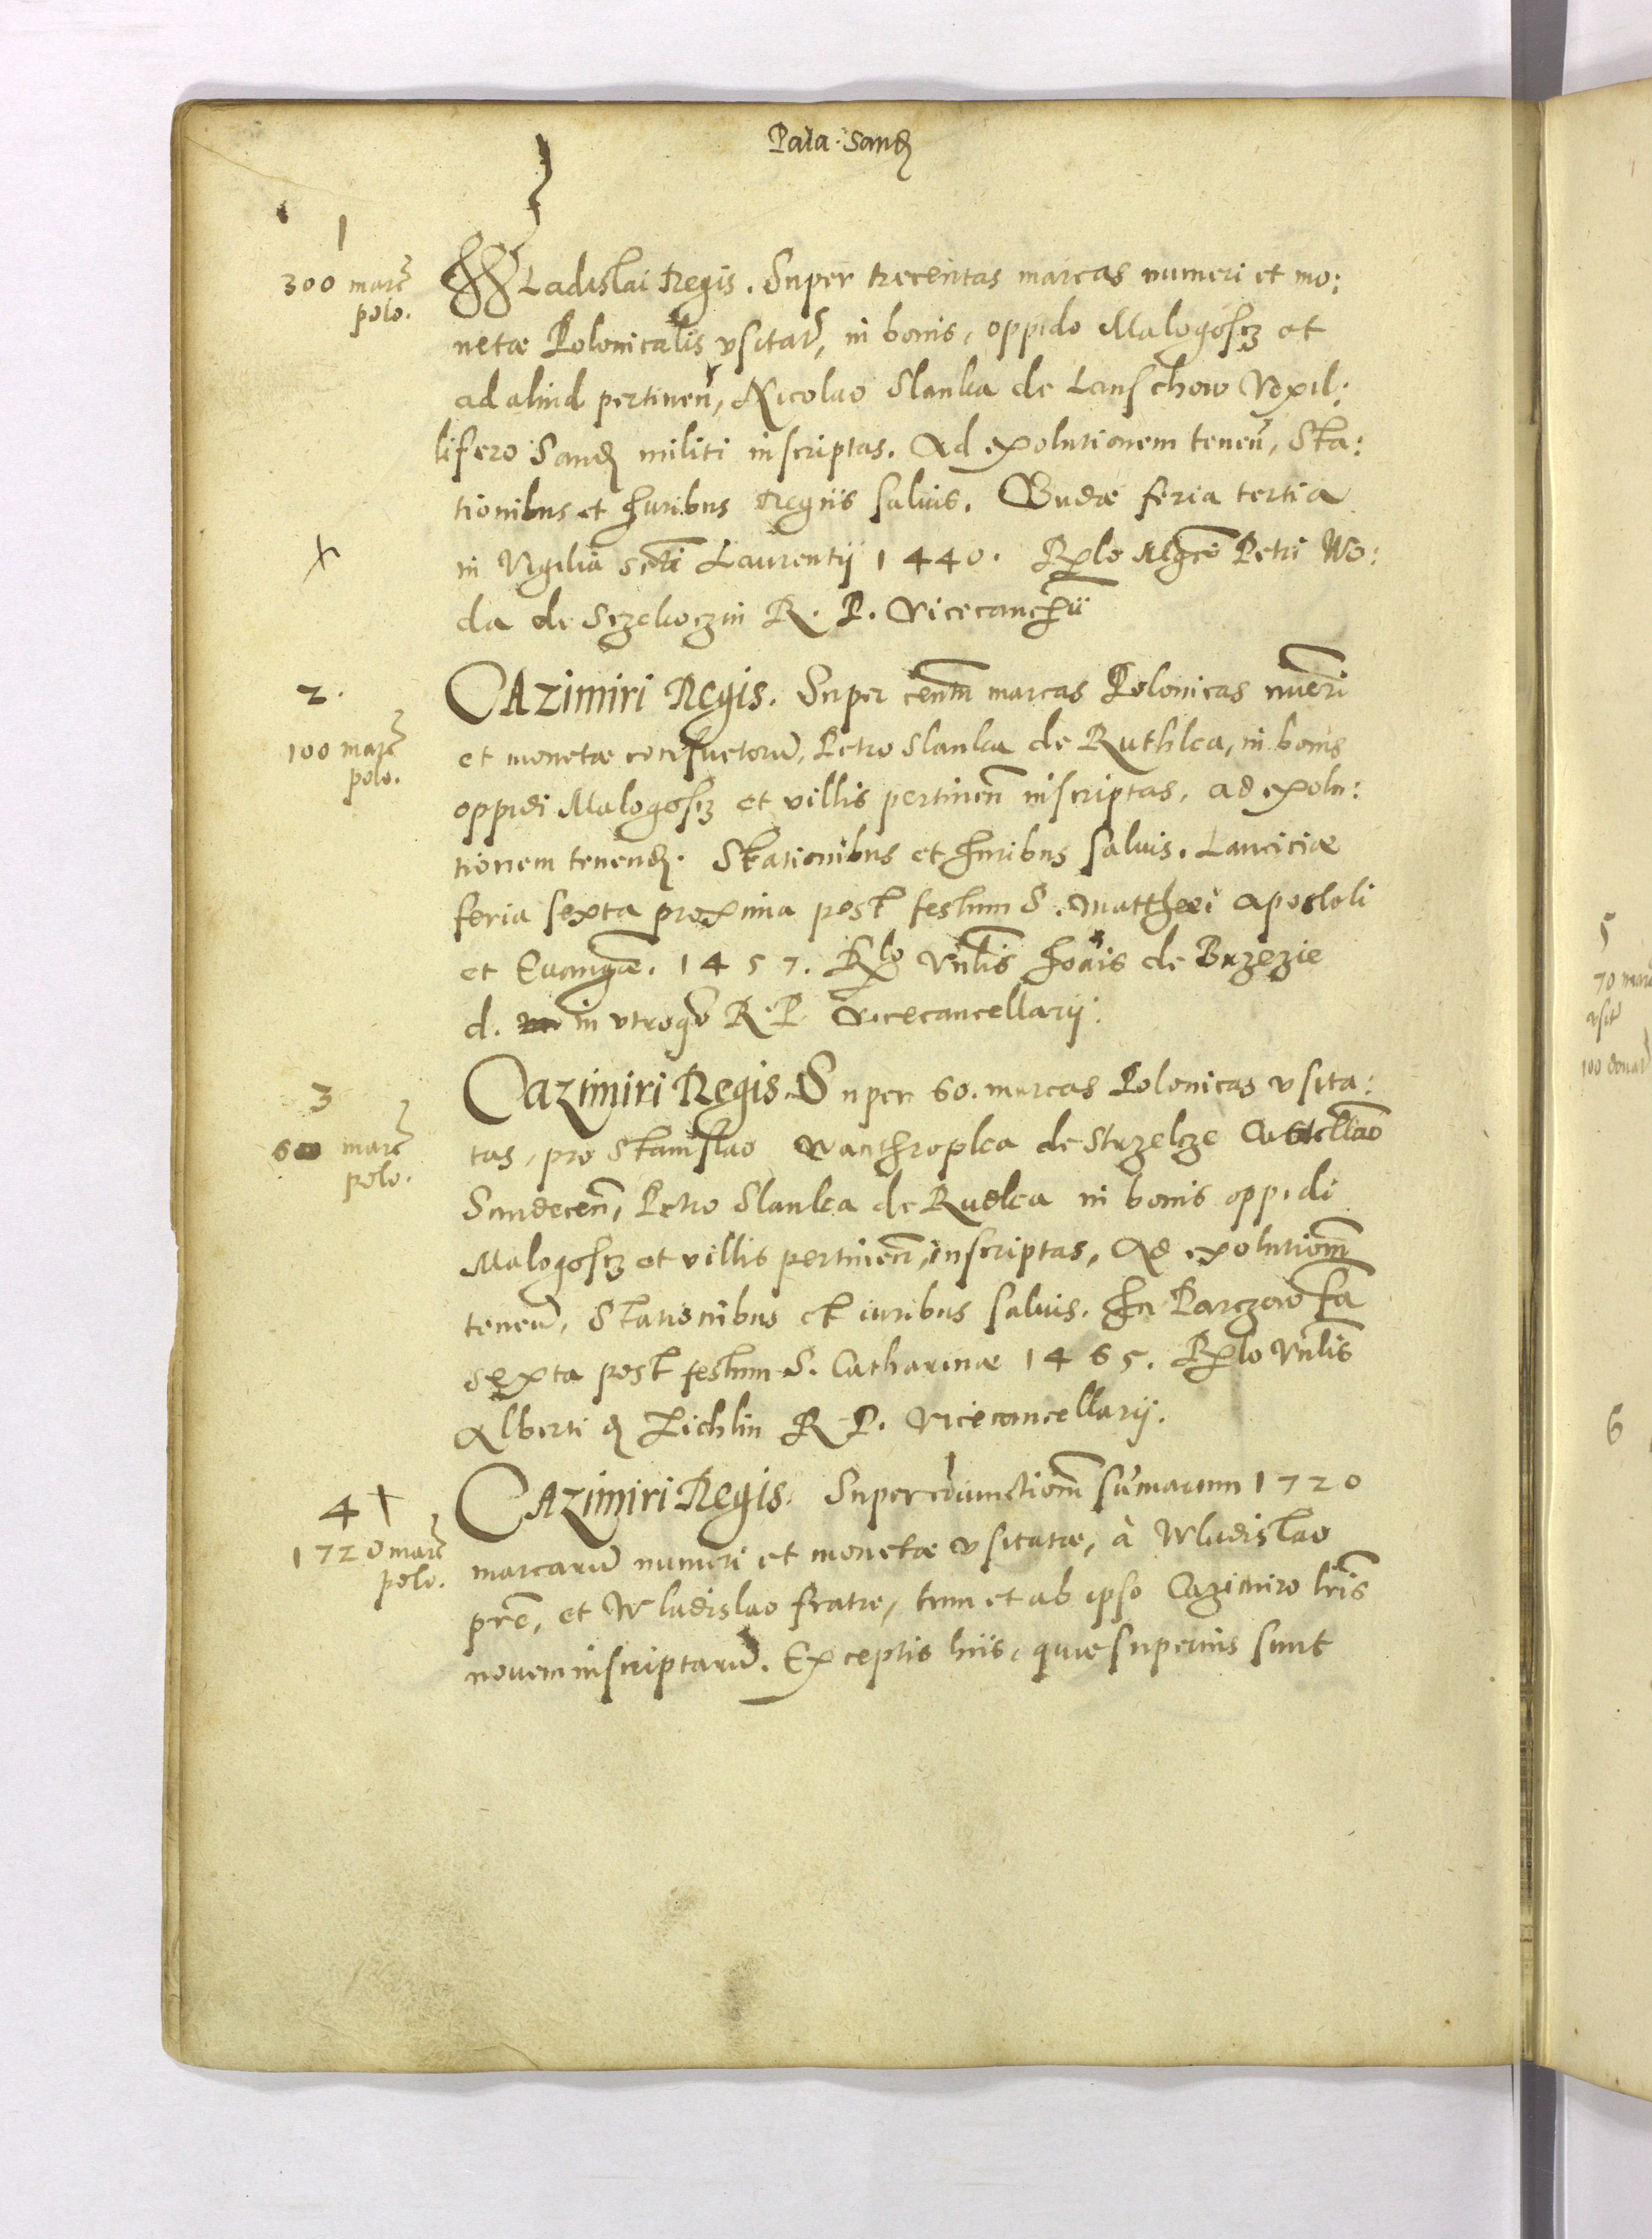 Pala. Sand
1
300 marc
polo.
WLadislai Regis. Super trecentas marcas numeri et mo:
netæ Polonicalis vsitat, in bonis, oppido Malogoscz et
ad aliud pertinen, Nicolao Slanka de Lanschow Vexil:
lifero Sand militi inscriptas. Ad exolutionem tenen, Sta:
tionibus et Iuribus Regiis saluis. Budæ feria tertia
x
in Vigilia scti Laurentij 1440. Rlo Mgci Petri Wo:
da de Sczekoczin R. P. Vicecancrii
2.
100 marc
polo.
CAzimiri Regis. Super centm marcas Polonicas nueri
et monetæ consuetoru, Petro Slanka de Ruthka, in bonis
oppidi Malogoscz et villis pertinen inscriptas, ad exolu:
tionem tenend. Stationibus et Iuribus saluis. Lanciciæ
feria sexta proxima post festum S. Matthæi Apostoli
et Euangæ. 1457. Rlo Vnlis Ioais de Brzezie
d. in vtroq R. P. Vicecancellarij.
3
60 marc
polo.
Cazimiri Regis. Super 60. marcas Polonicas vsita:
tas, pro Stanislao Wanthropka de Strzelcze Castellao
Sandecen, Petro Slanka de Rudka in bonis oppidi
Malogoscz et villis pertinen, inscriptas, Ad exolutiom
tenen, Stationibus et iuribus saluis. In Parczow fa
sexta post festum S. Catharinæ 1465. Rlo Vnlis
Alberti d Zichlin R. P. Vicecancellarij.
4 x
1720 marc
polo.
CAzimiri Regis. Super coiunctiom sumarum 1720
marcaru numeri et monetæ vsitatæ, à Wladislao
pre, et Wladislao fratre, tum et ab ipso Cazimiro lris
novem inscriptaru. Exceptis hiis, quæ superius sunt
5
70 marc
vsit
100 donat
6